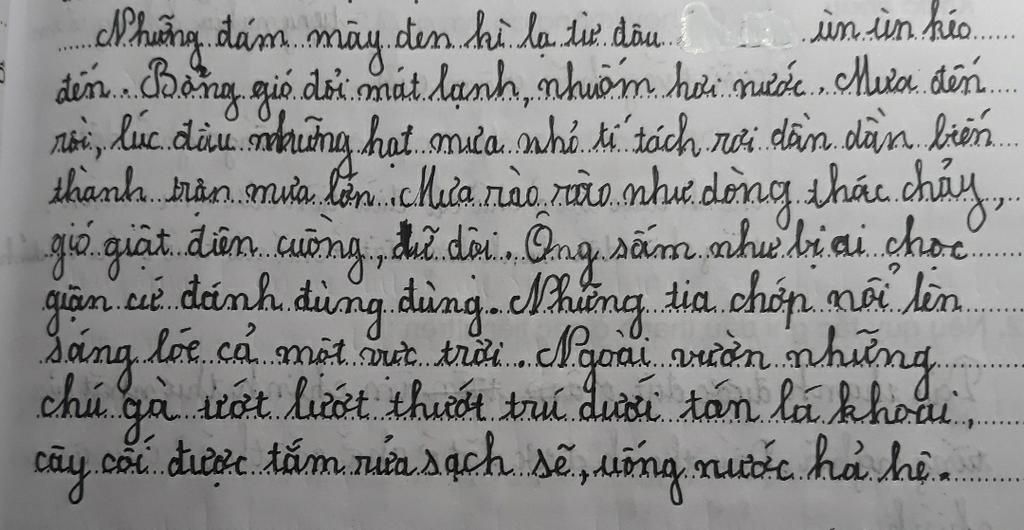 Những đám mây đen kì lạ từ đâu ùn ùn kéo
đến. Bỗng gió đổi mát lạnh, nhuốm hơi nước. Mưa đến
rồi, lúc đầu những hạt mưa nhỏ tí tách rơi dần dần biến
thành trận mưa lớn. Mưa rào rào như dòng thác chảy,
gió giật điên cuồng, dữ dội. Ông sấm như bị ai chọc
giận cứ đánh đùng đùng. Những tia chớp nổi lên
sáng lóe cả một vực trời. Ngoài vườn những
chú gà ướt lướt thướt trú dưới tán lá khoai,
cây cối được tắm rửa sạch sẽ, uống nước hả hê.